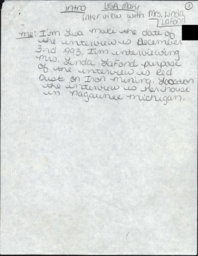 Intro USA Mary ①
interview with Mrs. Linda
LaFond
me: I'm Lisa Make the date of
the interview is December
3rd 993. I'm interviewing
Mrs. Linda LaFond purpose
of the interview is Red
Dust on Iron Mining. Location
the interview is Her house
in Negaunee Michigan.